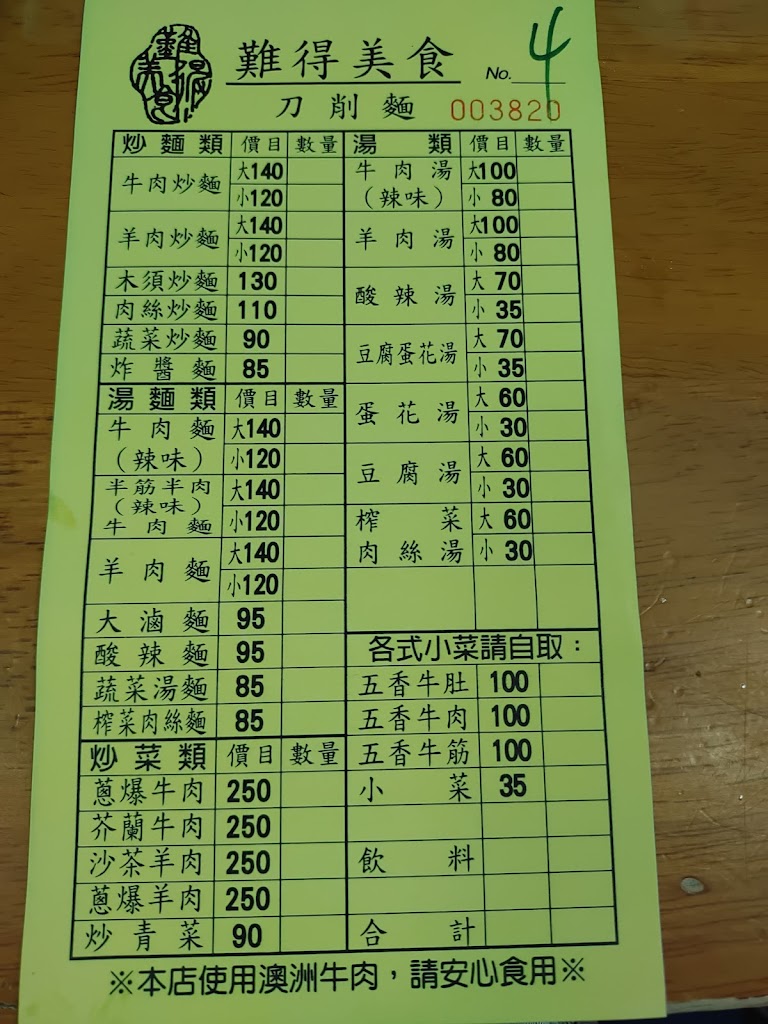 難得美食
難得美食
No. 4
刀削麵
003820
炒麵類 價目 數量
牛肉炒麵 大140
小120
羊肉炒麵 大140
小120
木須炒麵 130
肉絲炒麵 110
蔬菜炒麵 90
炸醬麵 85
湯麵類 價目 數量
牛肉麵 大140
(辣味) 小120
半筋半肉 大140
(辣味)
牛肉麵 小120
羊肉麵 大140
小120
大滷麵 95
酸辣麵 95
蔬菜湯麵 85
榨菜肉絲麵 85
炒菜類 價目 數量
蔥爆牛肉 250
芥蘭牛肉 250
沙茶羊肉 250
蔥爆羊肉 250
炒青菜 90
湯類 價目 數量
牛肉湯 大100
(辣味) 小80
羊肉湯 大100
小80
酸辣湯 大70
小35
豆腐蛋花湯 大70
小35
蛋花湯 大60
小30
豆腐湯 大60
小30
榨菜 大60
肉絲湯 小30
各式小菜請自取：
五香牛肚 100
五香牛肉 100
五香牛筋 100
小菜 35
飲料
合計
※本店使用澳洲牛肉，請安心食用※